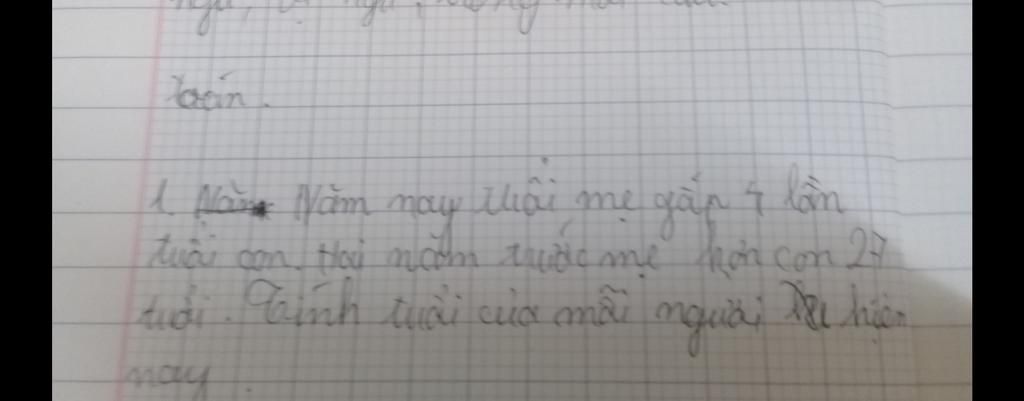 toán.
1. Năm nay tuổi mẹ gấp 4 lần
tuổi con. Hai năm trước mẹ hơn con 27
tuổi. Tính tuổi của mỗi người hiện
nay.